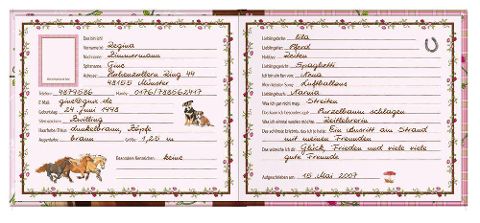 Das bin ich!
Vorname: Regina
Nachname: Zimmermann
Spitzname: Gine
Adresse: Hohenzollern Ring 44
48155 Münster
Telefon: 4879586 Handy: 0176/788562417
E-Mail: gine@gmx.de
Geburtstag: 24. Juni 1998
Zwilling
Haarfarbe/Frisur: dunkelbraun, Zöpfe
Augenfarbe: braun Größe: 1,25 m
Besondere Kennzeichen: keine
Lieblingsfarbe: lila
Lieblingstier: Pferd
Hobby: Reiten
Lieblingsessen: Spaghetti
Ich bin ein Fan von: Nena
Mein liebster Song: Luftballons
Lieblingsbuch: Narnia
Was ich gar nicht mag: Streiten
Das kann ich besonders gut: Purzelbaum schlagen
Was ich einmal werden möchte: Reitlehrerin
Das schönste Erlebnis, das ich je hatte: Ein Ausritt am Strand
mit meinen Freunden
Das wünsche ich dir: Glück, Frieden und viele viele
gute Freunde
Aufgeschrieben am: 15. Mai 2007